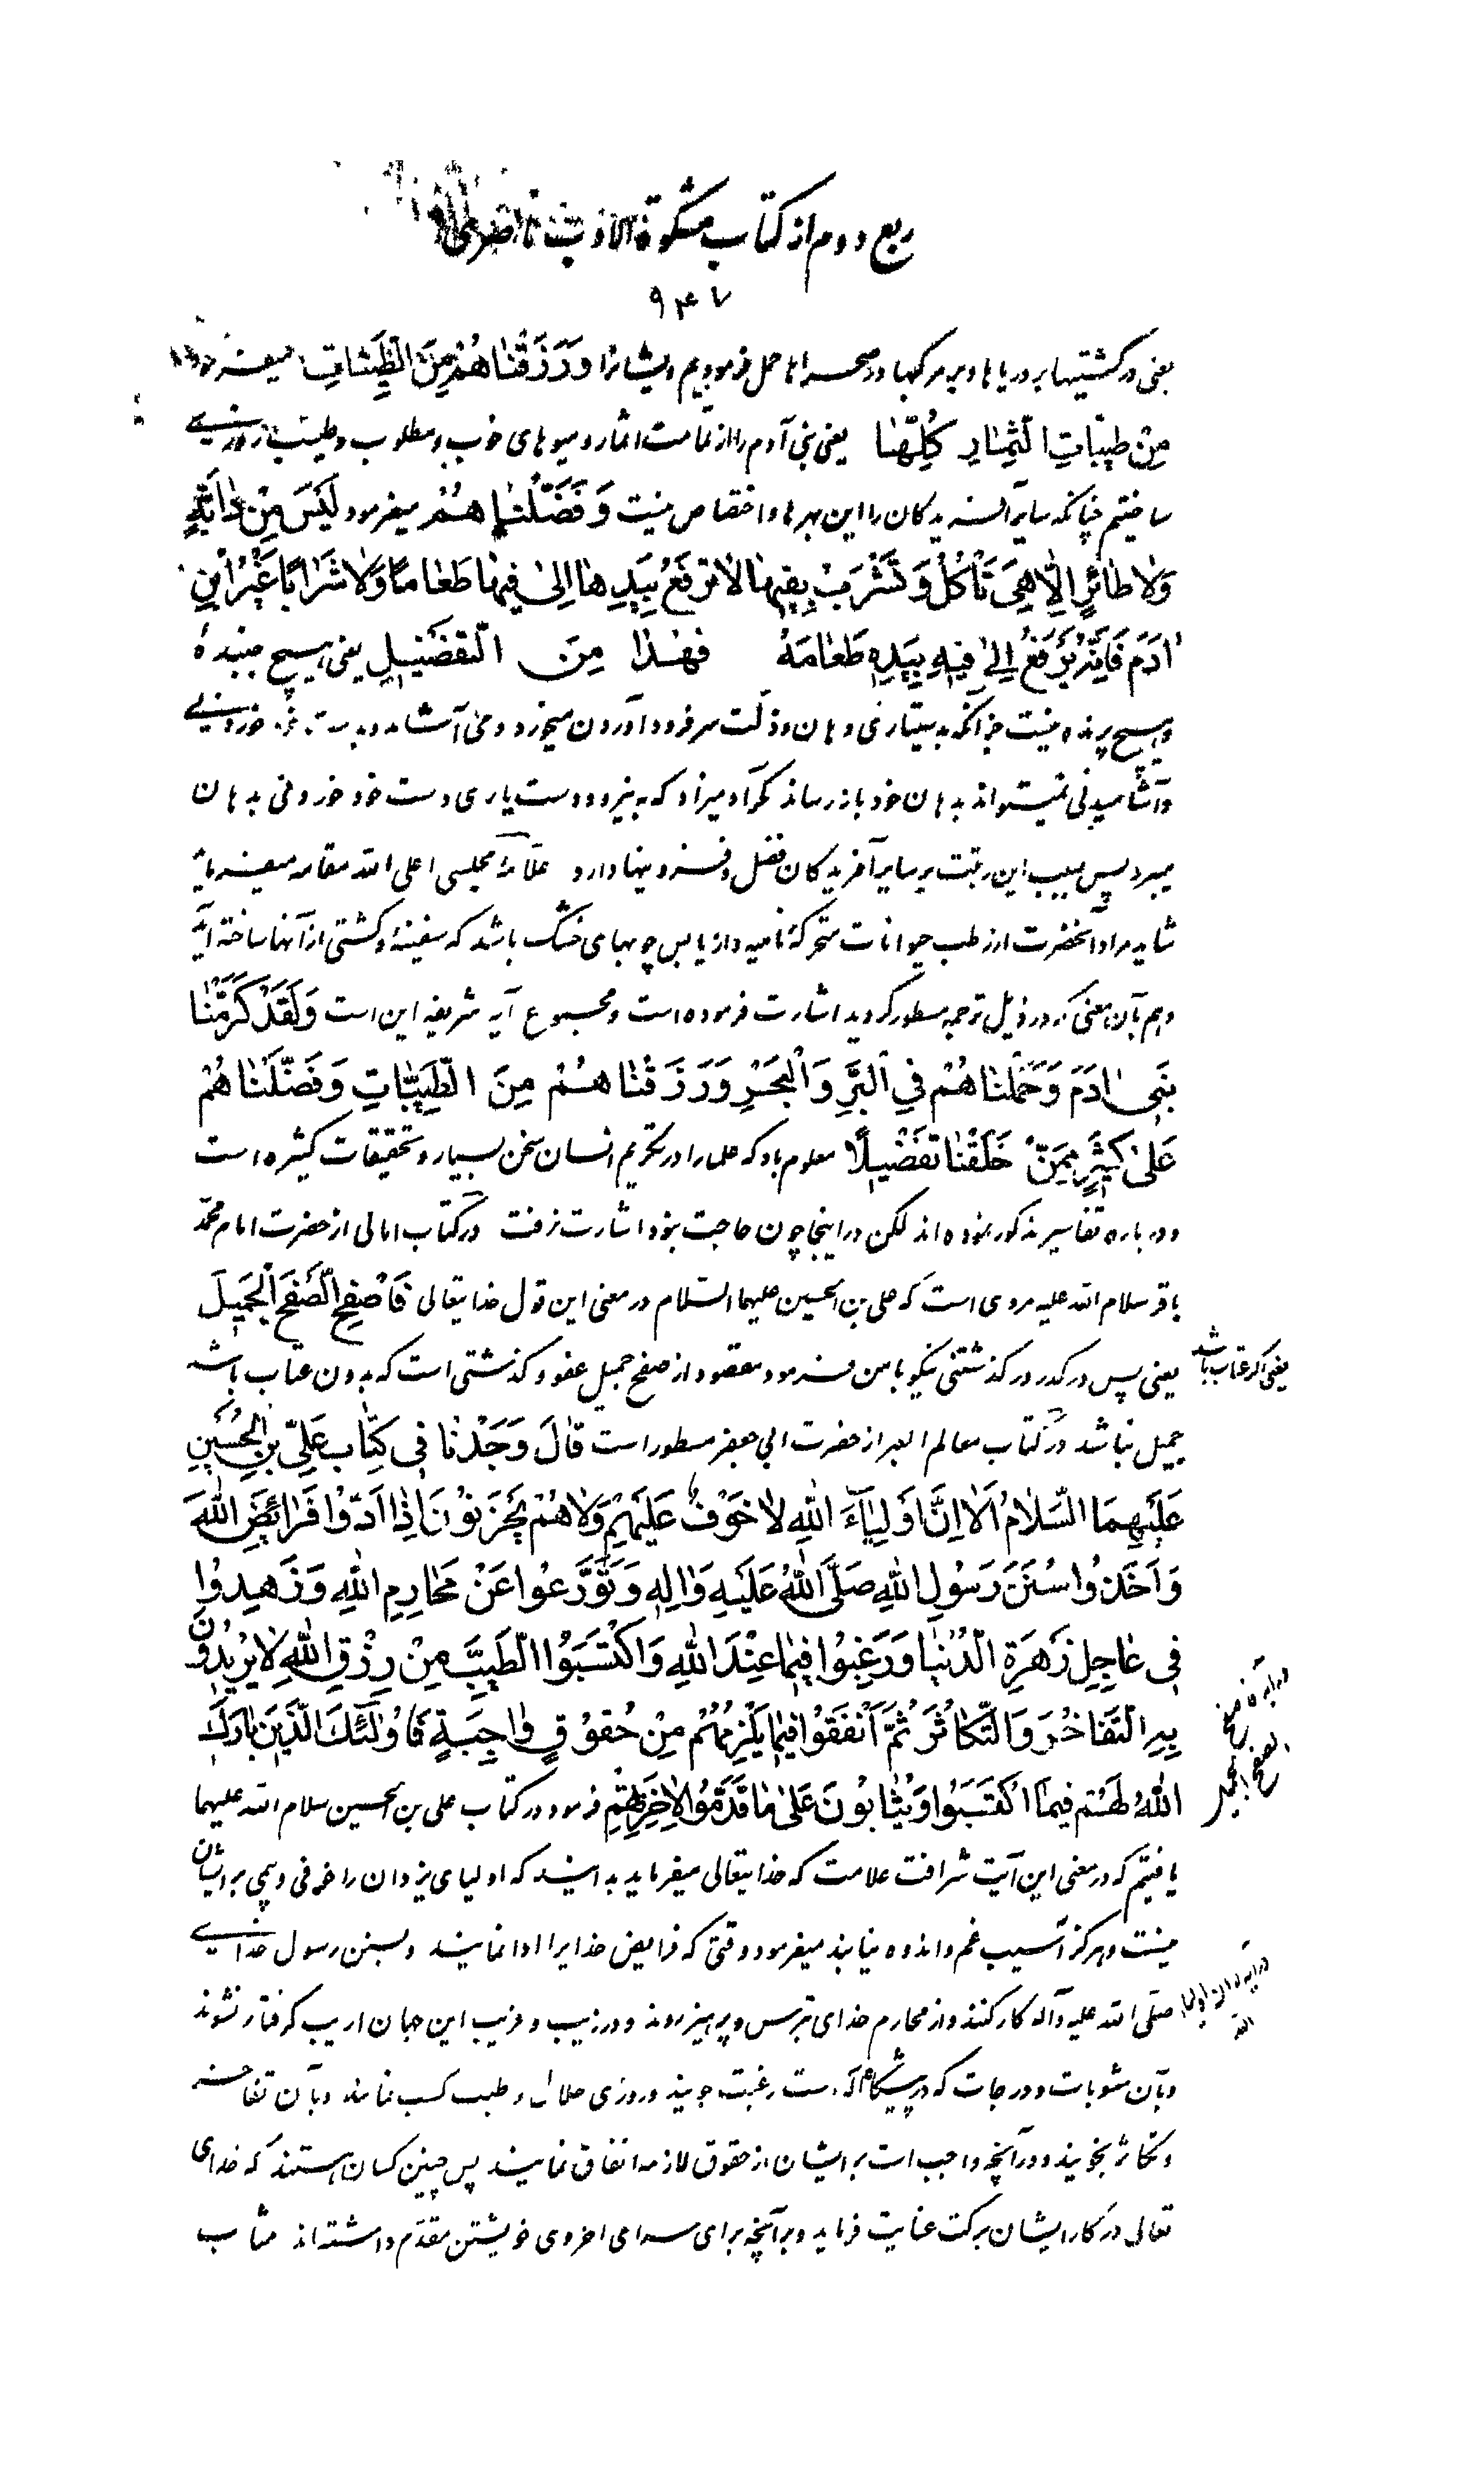 ربع دوم از کتاب مشکوة الادب ناصری
۹۴۷
یعنی در کشتیها بر دریاها و بر مرکبها در صحراها حمل فرمودیم ایشانرا وَرَزَقْنٰاهُمْ مِنَ الطَّیِّبٰاتِ میفرماید
مِنْ طَیِّبٰاتِ الثِّمٰارِ کُلِّهٰا یعنی بنی آدم را از تمامت اثمار و میوهای خوب و مطلوب و طیب روزی
ساختیم چنانکه سایر آفریدگان را این بهره و اختصاص نیست وَفَضَّلْنٰاهُمْ میفرمود لَیْسَ مِنْ دٰابَّةٍ
وَلاٰ طٰائِرٍ اِلاّٰ هِیَ تَاْکُلُ وَ تَشْرَبُ بِفیهٰا لاٰ تَرْفَعُ بِیَدِهٰا اِلیٰ فیهٰا طَعٰامًا وَلاٰ شَرٰابًا غَیْرُ ابْنِ
اٰدَمَ فَاِنَّهُ یَرْفَعُ اِلیٰ فیهِ بِیَدِهِ طَعٰامَهُ فَهٰذٰا مِنَ التَّفْضیلِ یعنی هیچ جنبنده
و هیچ پرنده نیست جز آنکه بدستیاری دهان و ذلت سر فرود آوردن میخورد و می آشامد و بدست خود خوردنی
و آشامیدنی نمیتواند بدهان خود باز رساند مگر آدمیزاد که به نیرو و دست یاری دست خود خوردنی بدهان
میبرد پس بسبب این رتبت بر سایر آفریدگان فضل و فزونیها دارد علامه مجلسی اعلی الله مقامه میفرماید
شاید مراد آنحضرت از رطب حیوانات متحرکه نامیه و از یابس چوبهای خشک باشد که سفینه و کشتی از آنها ساخته آید
و هم بآن معنی که در ذیل ترجمه مسطور گردید اشارت فرموده است و مجموع آیه شریفه این است وَلَقَدْ کَرَّمْنٰا
بَنی اٰدَمَ وَحَمَلْنٰاهُمْ فِی الْبَرِّ وَالْبَحْرِ وَرَزَقْنٰاهُمْ مِنَ الطَّیِّبٰاتِ وَفَضَّلْنٰاهُمْ
عَلیٰ کَثیرٍ مِمَّنْ خَلَقْنٰا تَفْضیلًا معلوم باد که علما را در تکریم انسان سخن بسیار و تحقیقات کثیره است
و در باره تفاسیر مذکور نموده اند لکن در اینجا چون حاجت نبود اشارت نرفت در کتاب امالی از حضرت امام محمد
باقر سلام الله علیه مروی است که علی بن الحسین علیهما السلام در معنی این قول خدایتعالی فَاصْفَحِ الصَّفْحَ الْجَمیلَ
یعنی پس درگذر درگذشتنی نیکو با من فرمود مقصود از صفح جمیل عفو و گذشتی است که بدون عتاب باشد
یعنی اگر عتاب باشد
جمیل نباشد در کتاب معالم العبر از حضرت ابی جعفر مسطور است قٰالَ وَجَدْنٰا فی کِتٰابِ عَلِیِّ بْنِ الْحُسَیْنِ
عَلَیْهِمَا السَّلاٰمُ اَلاٰ اِنَّ اَوْلِیٰآءَ اللهِ لاٰ خَوْفٌ عَلَیْهِمْ وَلاٰ هُمْ یَحْزَنُونَ اِذٰا اَدَّوْا فَرٰائِضَ اللهِ
وَ اَخَذُوا سُنَنَ رَسُولِ اللهِ صَلَّی اللهُ عَلَیْهِ وَاٰلِهِ وَ تَوَرَّعُوا عَنْ مَحٰارِمِ اللهِ وَ زَهِدُوا
فی عٰاجِلِ زَهْرَةِ الدُّنْیٰا وَ رَغِبُوا فیمٰا عِنْدَ اللهِ وَ اکْتَسَبُوا الطَّیِّبَ مِنْ رِزْقِ اللهِ لاٰ یُریدُونَ
بِهِ التَّفٰاخُرَ وَالتَّکٰاثُرَ ثُمَّ اَنْفَقُوا فیمٰا یَلْزَمُهُمْ مِنْ حُقُوقٍ وٰاجِبَةٍ فَاُولٰئِکَ الَّذینَ بٰارَکَ
در آیه فاصفح
الصفح الجمیل
اللهُ لَهُمْ فیمَا اکْتَسَبُوا وَ یُثٰابُونَ عَلیٰ مٰا قَدَّمُوا لِاٰخِرَتِهِمْ فرمود در کتاب علی بن الحسین سلام الله علیهما
یافتیم که در معنی این آیت شرافت علامت که خدایتعالی میفرماید بدانید که اولیای یزدان را خوفی و بیمی بر ایشان
نیست و هرگز آسیب غم و اندوه نیابند میفرمود وقتی که فرایض خدایرا ادا نمایند و بسنن رسول خدای
صلی الله علیه وآله کار کنند و از محارم خدای بترس و پرهیز روند و در زیب و فریب این جهان اریب گرفتار نشوند
در آیه ان اولیاء
الله
و بآن مثوبات و درجات که در پیشگاه اوست رغبت جویند و روزی حلال و طیب کسب نمایند و بآن تفاخر
و تکاثر نجویند و در آنچه واجب است بر ایشان از حقوق لازمه انفاق نمایند پس چنین کسان هستند که خدای
تعالی در کار ایشان برکت عنایت فرماید و بر آنچه برای سرای اخروی خویشتن مقدم داشته اند مثاب